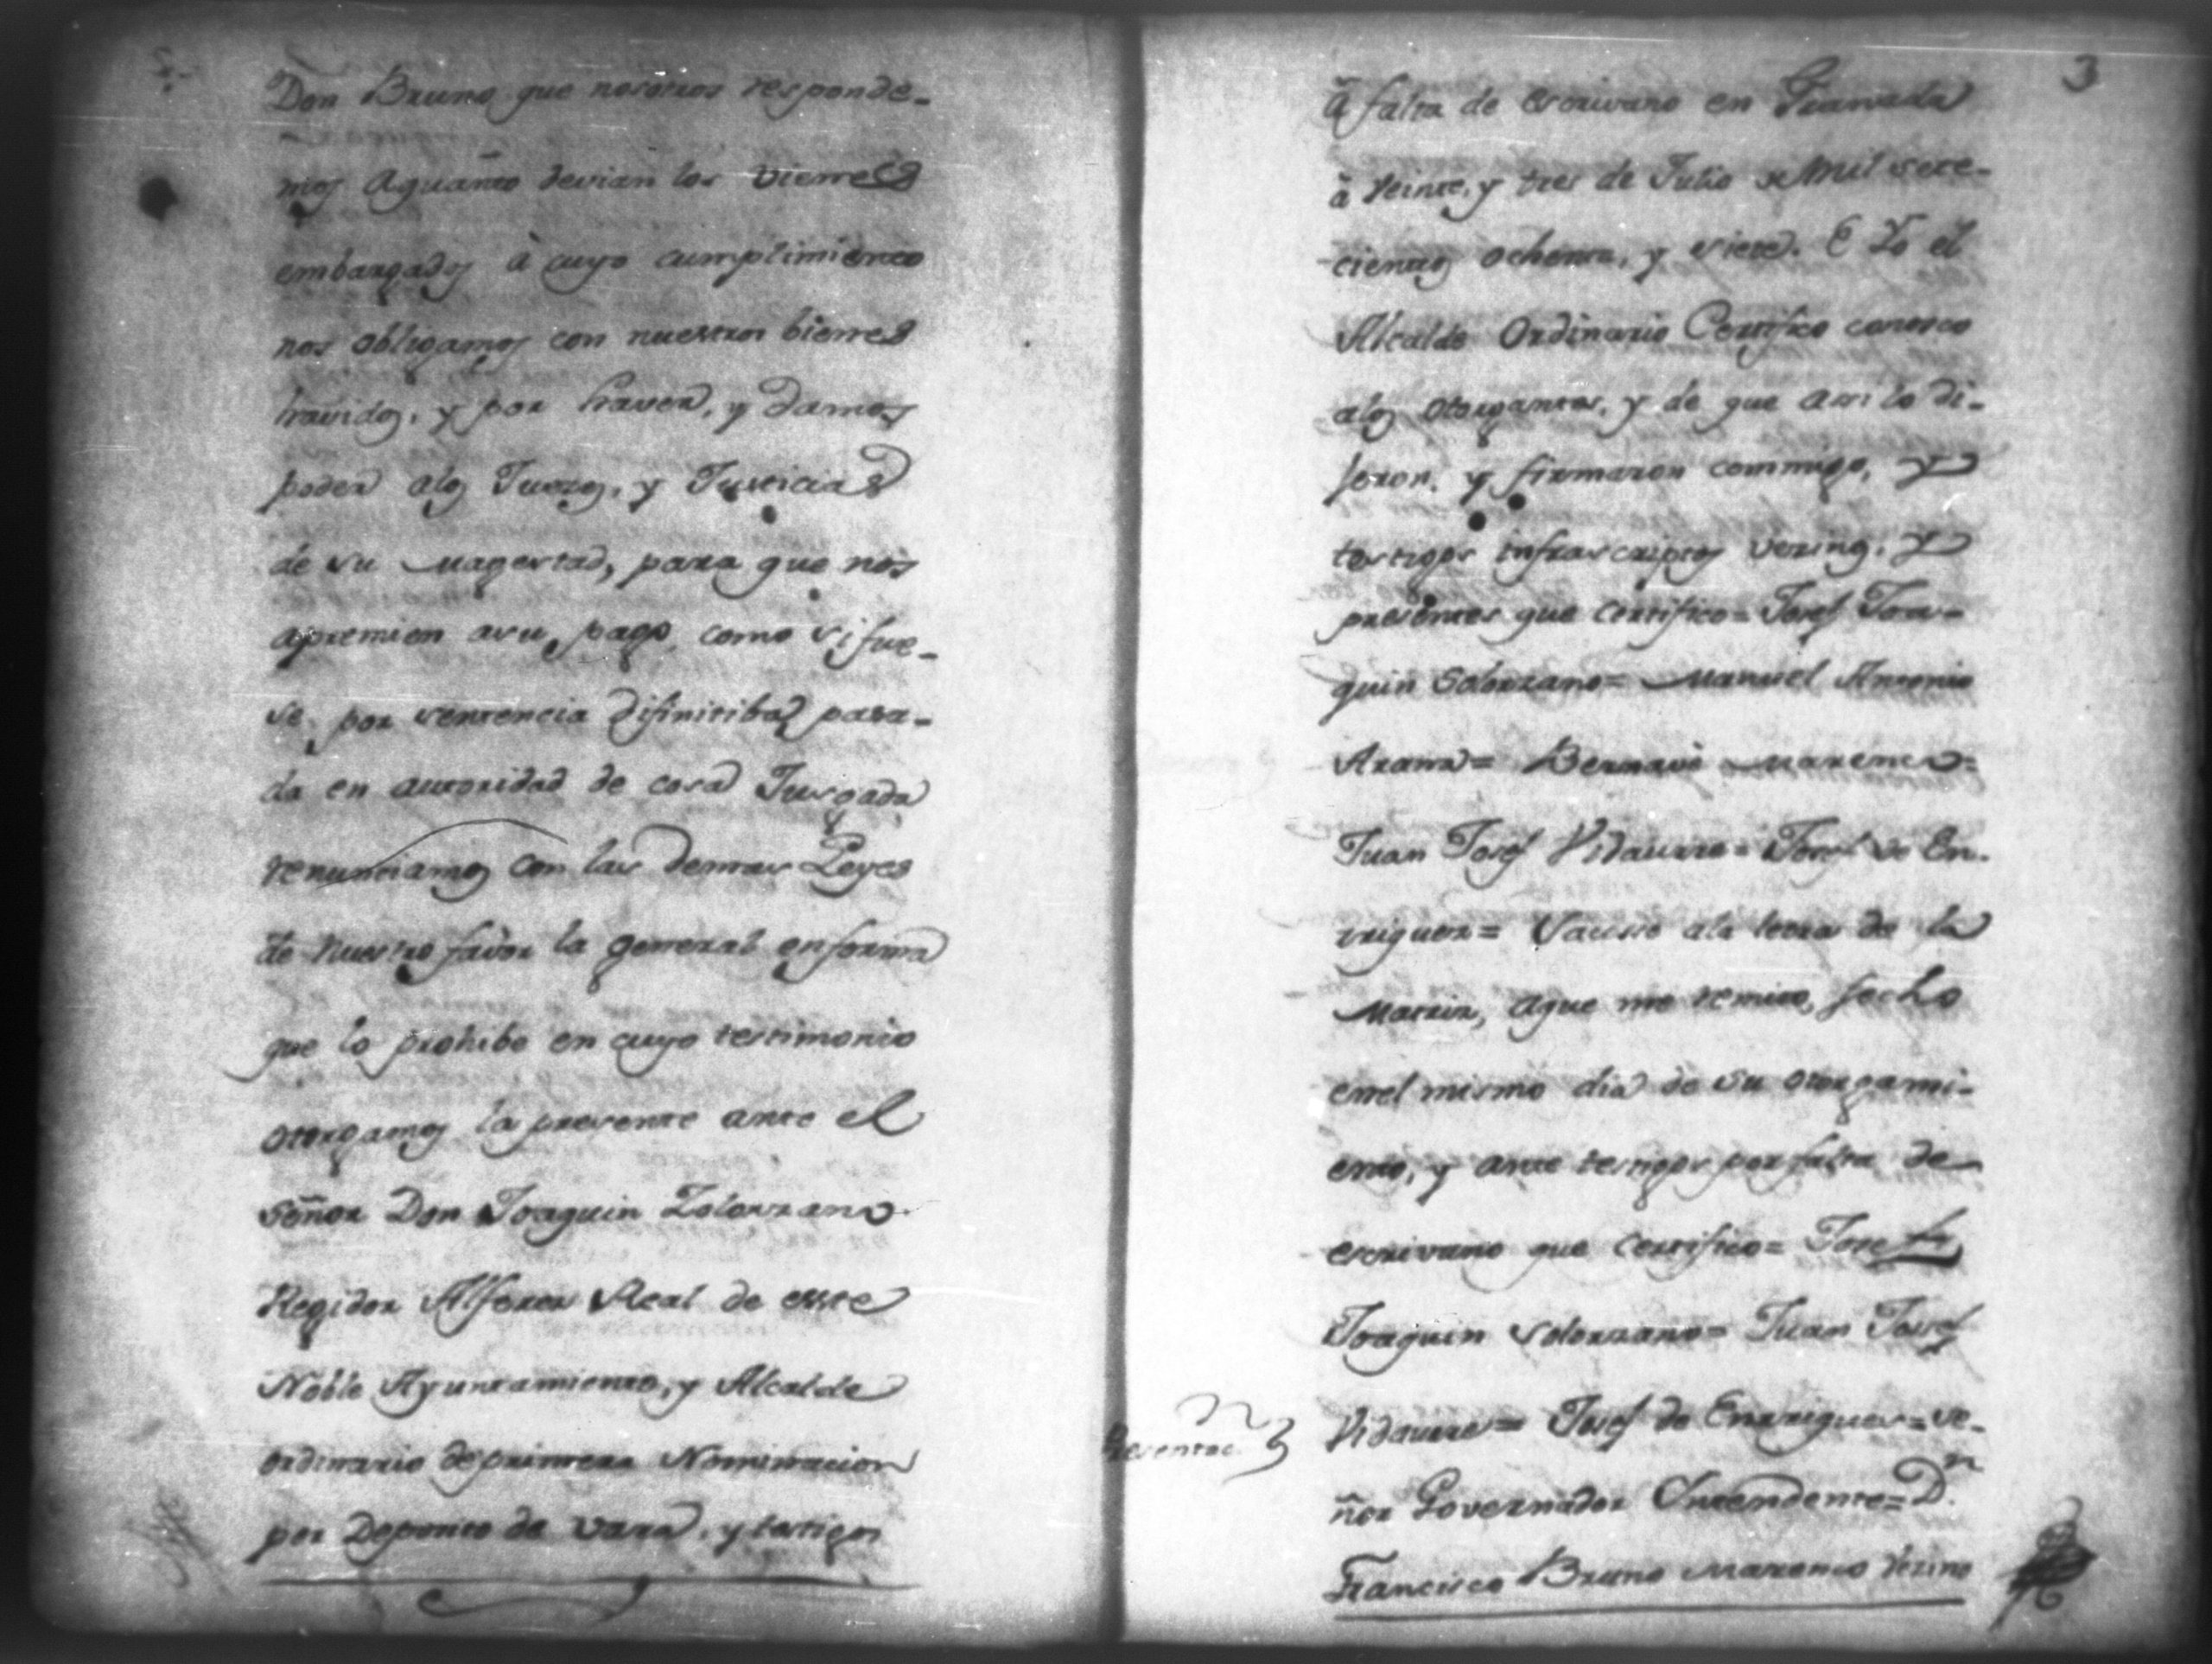 Don Bruno, que nosotros responde-
mos aquanto devian los vienes
embargados à cuyo cumplimiento
nos obligamos con nuestros bienes
havidos, y por haver, y damos
poder alos Juezes, y Justicias
de su Magestad, para que nos
apremien asu pago, como si fue-
se, por sentencia difinitiba pasa-
da en autoridad de cosa Jusgada
renunciamos con las demas Leyes
de nuestro favor la general enforma
que lo prohibe en cuyo testimonio
otorgamos la presente ante el
señor Don Joaquin Zolorzano
Regidor Alferes Real de este
Noble Ayuntamiento, y Alcalde
ordinario de primera Nominacion
por Deposito de vara, y testigos
3
à falta de escrivano en Granada
à veinte, y tres de Julio de Mil sete-
cientos ochenta, y siete. E Yo el
Alcalde Ordinario Certifico conosco
alos otorgantes, y de que assi lo di-
jeron, y firmaron commigo, y
testigos infrascriptos vezinos, y
presentes que certifico= Josef Joa-
quin Solorzano= Manuel Antonio
Arana= Bernavè Marenco=
Juan Josef Vidaurre= Josef de En-
rriquez= Sacose ala letra de la
Matriz, aque me remito, fecho
enel mismo dia de su otorgami-
ento, y ante testigos por falta de
escrivano que certifico= Josef
Joaquin Solorzano= Juan Josef
Vidaurre= Josef de Enrriquez= Se-
ñor Governador Intendente= D.n
Francisco Bruno Marenco Vezino